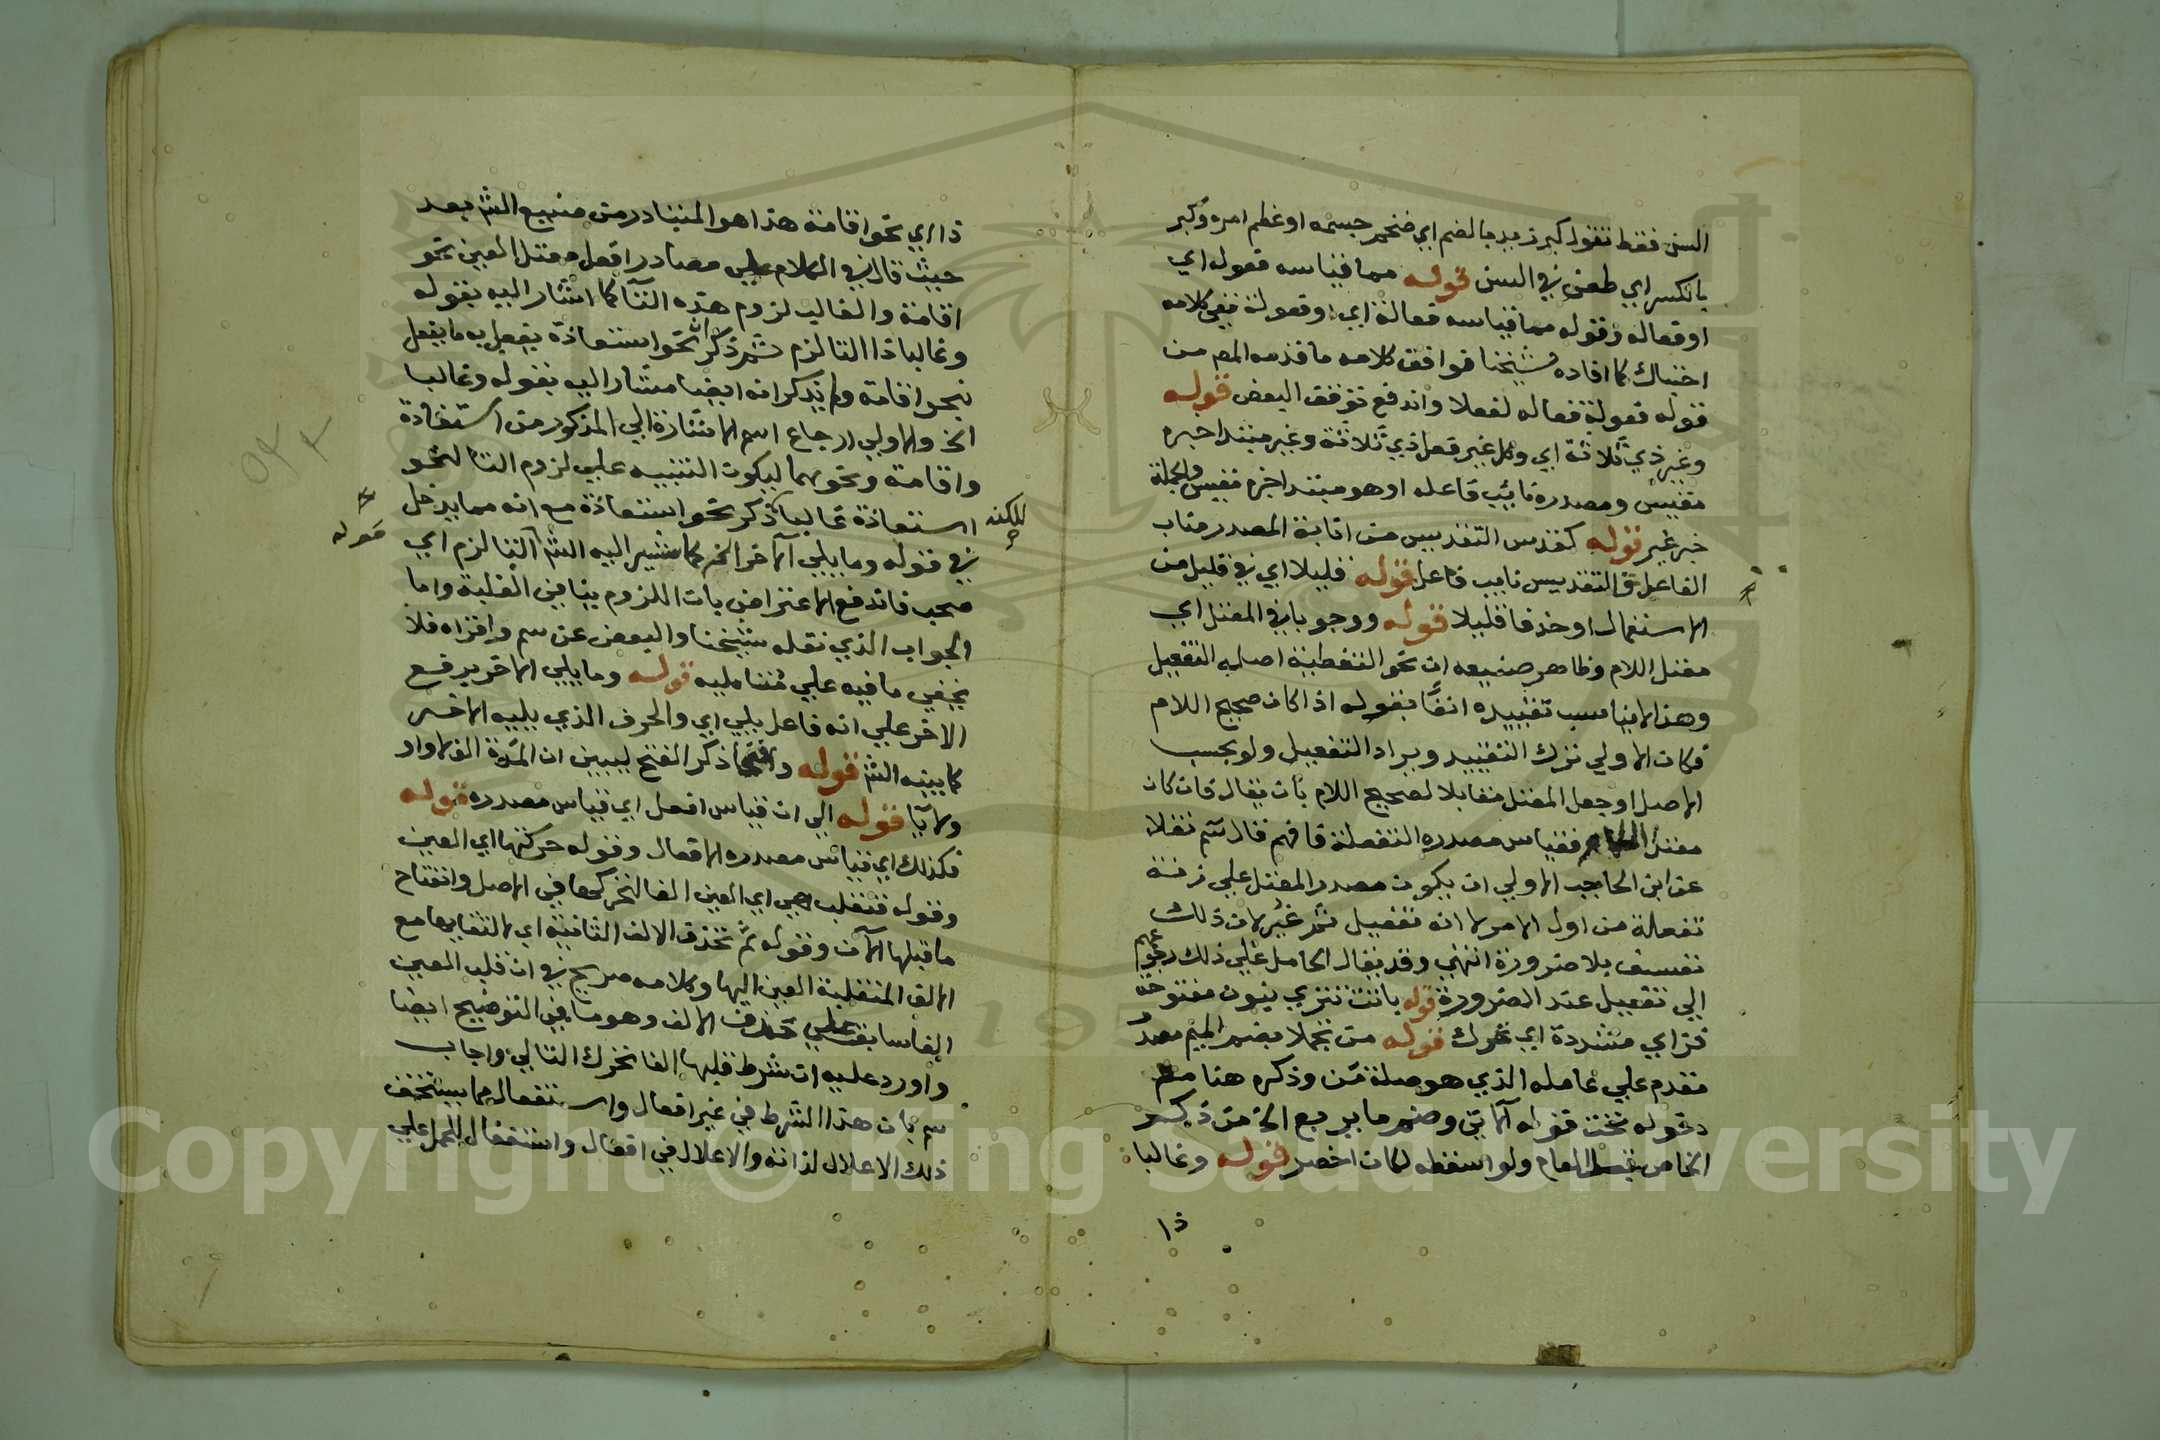 السن فقط تقول كبر زيد بالضم اي ضخم جسمه او عظم امره وكبر
بالكسر اي طعن في السن قوله مما قياسه فعوله اي
او فعاله وقوله مما قياسه فعالة اي او فعولة ففي كلامه
احتباك كما افاده شيخنا فوافق كلامه ما قدمه المص من
قوله فعولة فعاله لفعلا واندفع توقف البعض قوله
وغير ذي ثلاثة اي وكل غير فعل ذي ثلاثة وغير مبتدا خبره
مقيس ومصدره نائب فاعله او هو مبتدا خبره مقيس والجملة
خبر غير قوله كقدس التقديس من انابة المصدر مناب
الفاعل فالتقديس نايب فاعل قوله قليلا اي في قليل من
الاستعمال او حذفا قليلا قوله ووجوبا في المعتل اي
معتل اللام وظاهر صنيعه ان نحو التغطية اصليه التفعيل
وهذا لا يناسب تقييده انفا بقوله اذا كان صحيح اللام
فكان الاولي ترك التقييد ويراد التفعيل ولو بحسب
الاصل او جعل المعتل مقابلا لصحيح اللام بان يقال فان كان
معتل اللام فقياس مصدره التفعلة فافهم قال سم نقلا
عن ابن الحاجب الاولي ان يكون مصدر المعتل علي زنة
تفعلة من اول الامر لا انه تفعيل ثم غير لان ذلك
تعسف بلا ضرورة انتهي وقد يقال الحامل علي ذلك رجوعهم
الي تفعيل عند الضرورة قوله باتت تنزي بنون مفتوحة
فزاي مشددة اي تحرك قوله من تجملا بضم الميم مصدر
مقدم علي عامله الذي هو صلة من وذكره هنا مع
دخوله تحت قوله الاتي وضم ما يربع الخ من ذكر
الخاص قبل العام ولو اسقطه لكان اخصر قوله وغالبا
ذا
ذا اي نحو اقامة هذا هو المتبادر من صنيع الش بعد
حيث قال في الكلام علي مصادر افعل معتل العين نحو
اقامة والغالب لزوم هذه التا كما اشار اليه بقوله
وغالبا ذا التا لزم ثم ذكر نحو استعاذة يفعل به ما يفعل
بنحو اقامة ولم يذكر انه ايضا مشار اليه بقوله وغالبا
الخ والاولي ارجاع اسم الاشارة الي المذكور من استعاذة
واقامة ونحوهما ليكون التنبيه علي لزوم التا لنحو
استعاذة غالبا ذكر نحو استعاذة مع انه مما يدخل
في قوله وما يلي الاخر الخ كما يشير اليه الش التا لزم اي
صحب فاندفع الاعتراض بان اللزوم ينافي الغلبة واما
الجواب الذي نقله شيخنا والبعض عن سم واقراه فلا
يخفي ما فيه علي متامليه قوله وما يلي الاخر برفع
الاخر علي انه فاعل يلي اي والحرف الذي يليه الاخر
كما بينه الش قوله وافتحا ذكر الفتح ليبين ان المدة الف لا واو
ولا يا قوله الي ان قياس افعل اي قياس مصدره قوله
فكذلك اي قياس مصدره الافعال وقوله حركتها اي العين
وقوله فتقلب هي اي العين الفا لتحركها في الاصل وانفتاح
ما قبلها الان وقوله ثم تحذف الالف الثانية اي لالتقايها مع
الالف المنقلبة العين اليها وكلامه صريح في ان قلب العين
الفا سابق علي حذف الالف وهو ما في التوضيح ايضا
واورد عليه ان شرط قلبها الفا تحرك التالي واجاب
سم بان هذا الشرط في غير افعال واستفعال مما يستحق
ذلك الاعلال لذاته والاعلال في افعال واستفعال للحمل علي
للكنه
قوله
Copyright © King Saud University
195